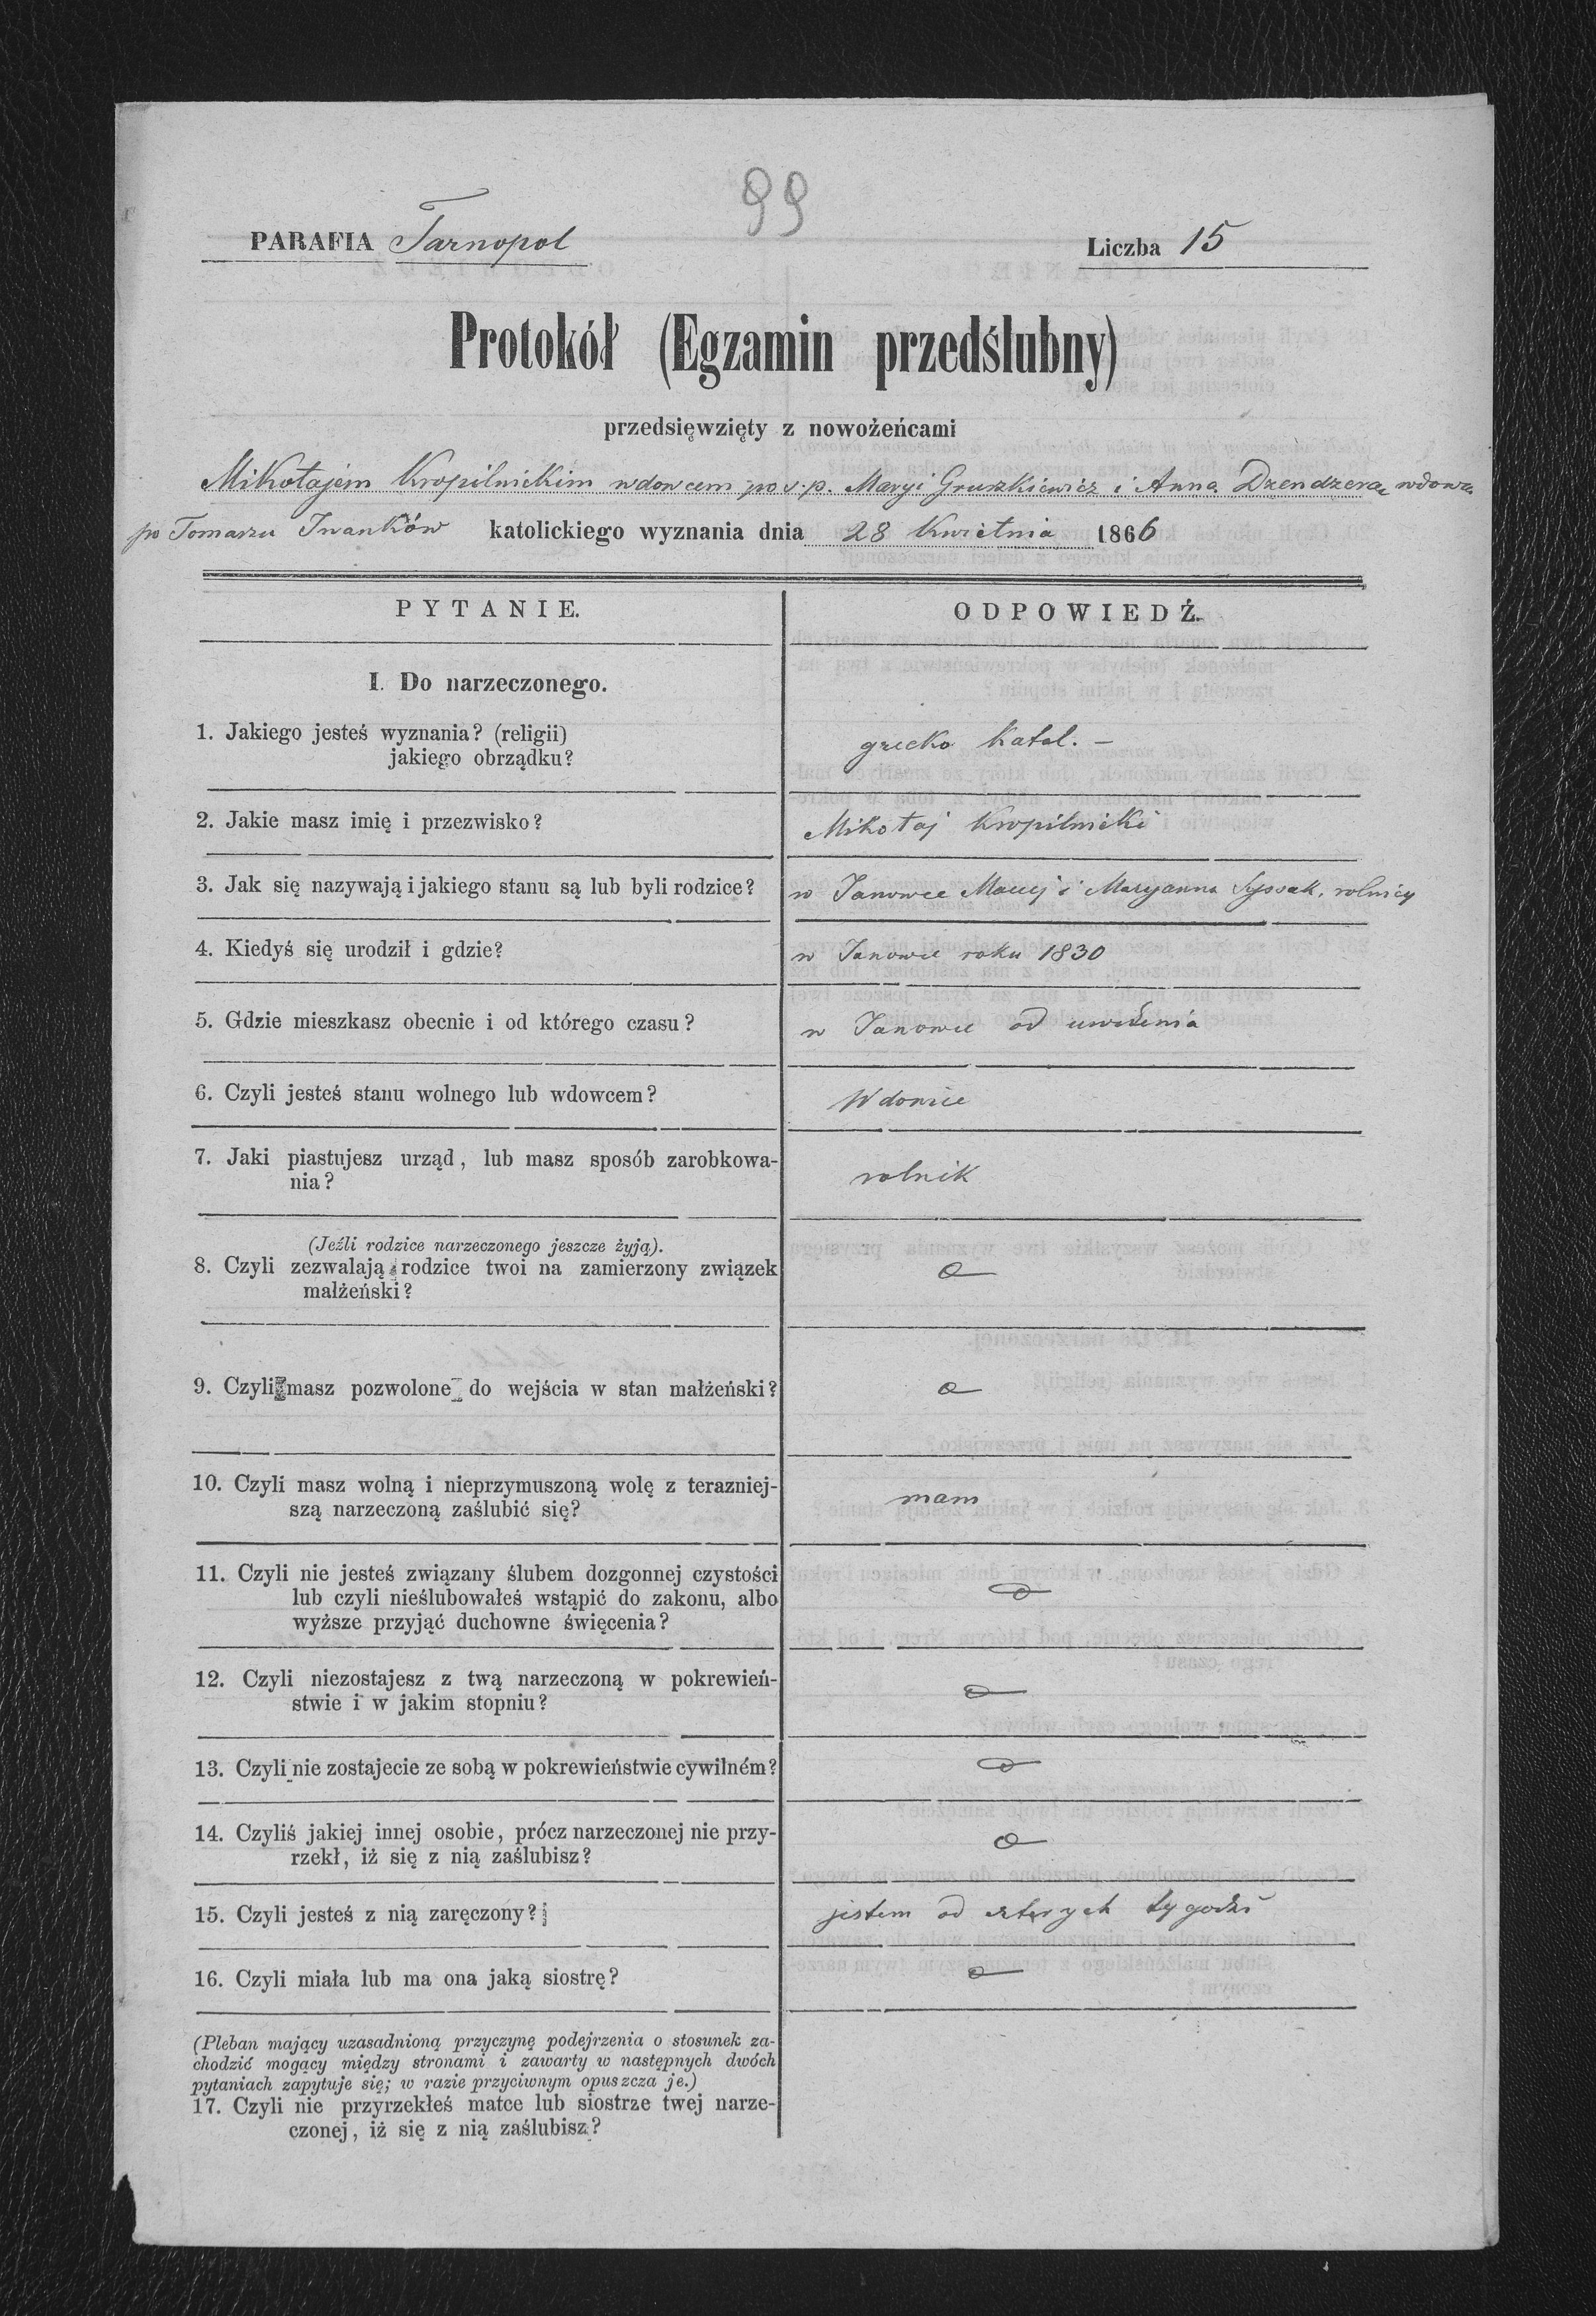 99
PARAFIA Tarnopol
Liczba 15
Protokół (Egzamin przedślubny)
przedsięwzięty z nowożeńcami
Mikołajem Kropilnickim wdowcem po ś.p. Maryi Gruszkiewicz i Anną Dzendzerą wdową
po Tomaszu Iwanków katolickiego wyznania dnia 28 Kwietnia 1866
PYTANIE.
ODPOWIEDŹ.
I. Do narzeczonego.
1. Jakiego jesteś wyznania? (religii)
jakiego obrządku?
grecko katol. –
2. Jakie masz imię i przezwisko?
Mikołaj Kropilnicki
3. Jak się nazywają i jakiego stanu są lub byli rodzice?
w Janowce Maciej i Maryanna rolnicy
4. Kiedyś się urodził i gdzie?
w Janowce roku 1830
5. Gdzie mieszkasz obecnie i od którego czasu?
w Janowce od urodzenia
6. Czyli jesteś stanu wolnego lub wdowcem?
Wdowiec
7. Jaki piastujesz urząd, lub masz sposób zarobkowa-
nia?
rolnik
(Jeźli rodzice narzeczonego jeszcze żyją).
8. Czyli zezwalają rodzice twoi na zamierzony związek
małżeński?
9. Czyli masz pozwolone do wejścia w stan małżeński?
10. Czyli masz wolną i nieprzymuszoną wolę z terazniej-
szą narzeczoną zaślubić się?
mam
11. Czyli nie jesteś związany ślubem dozgonnej czystości
lub czyli nieślubowałeś wstąpić do zakonu, albo
wyższe przyjąć duchowne święcenia?
12. Czyli niezostajesz z twą narzeczoną w pokrewień-
stwie i w jakim stopniu?
13. Czyli nie zostajecie ze sobą w pokrewieństwie cywilném?
14. Czyliś jakiej innej osobie, prócz narzeczonej nie przy-
rzekł, iż się z nią zaślubisz?
15. Czyli jesteś z nią zaręczony?
jestem od czterych tygodni
16. Czyli miała lub ma ona jaką siostrę?
(Pleban mający uzasadnioną przyczynę podejrzenia o stosunek za-
chodzić mogący między stronami i zawarty w następnych dwóch
pytaniach zapytuje się; w razie przyciwnym opuszcza je.)
17. Czyli nie przyrzekłeś matce lub siostrze twej narze-
czonej, iż się z nią zaślubisz?